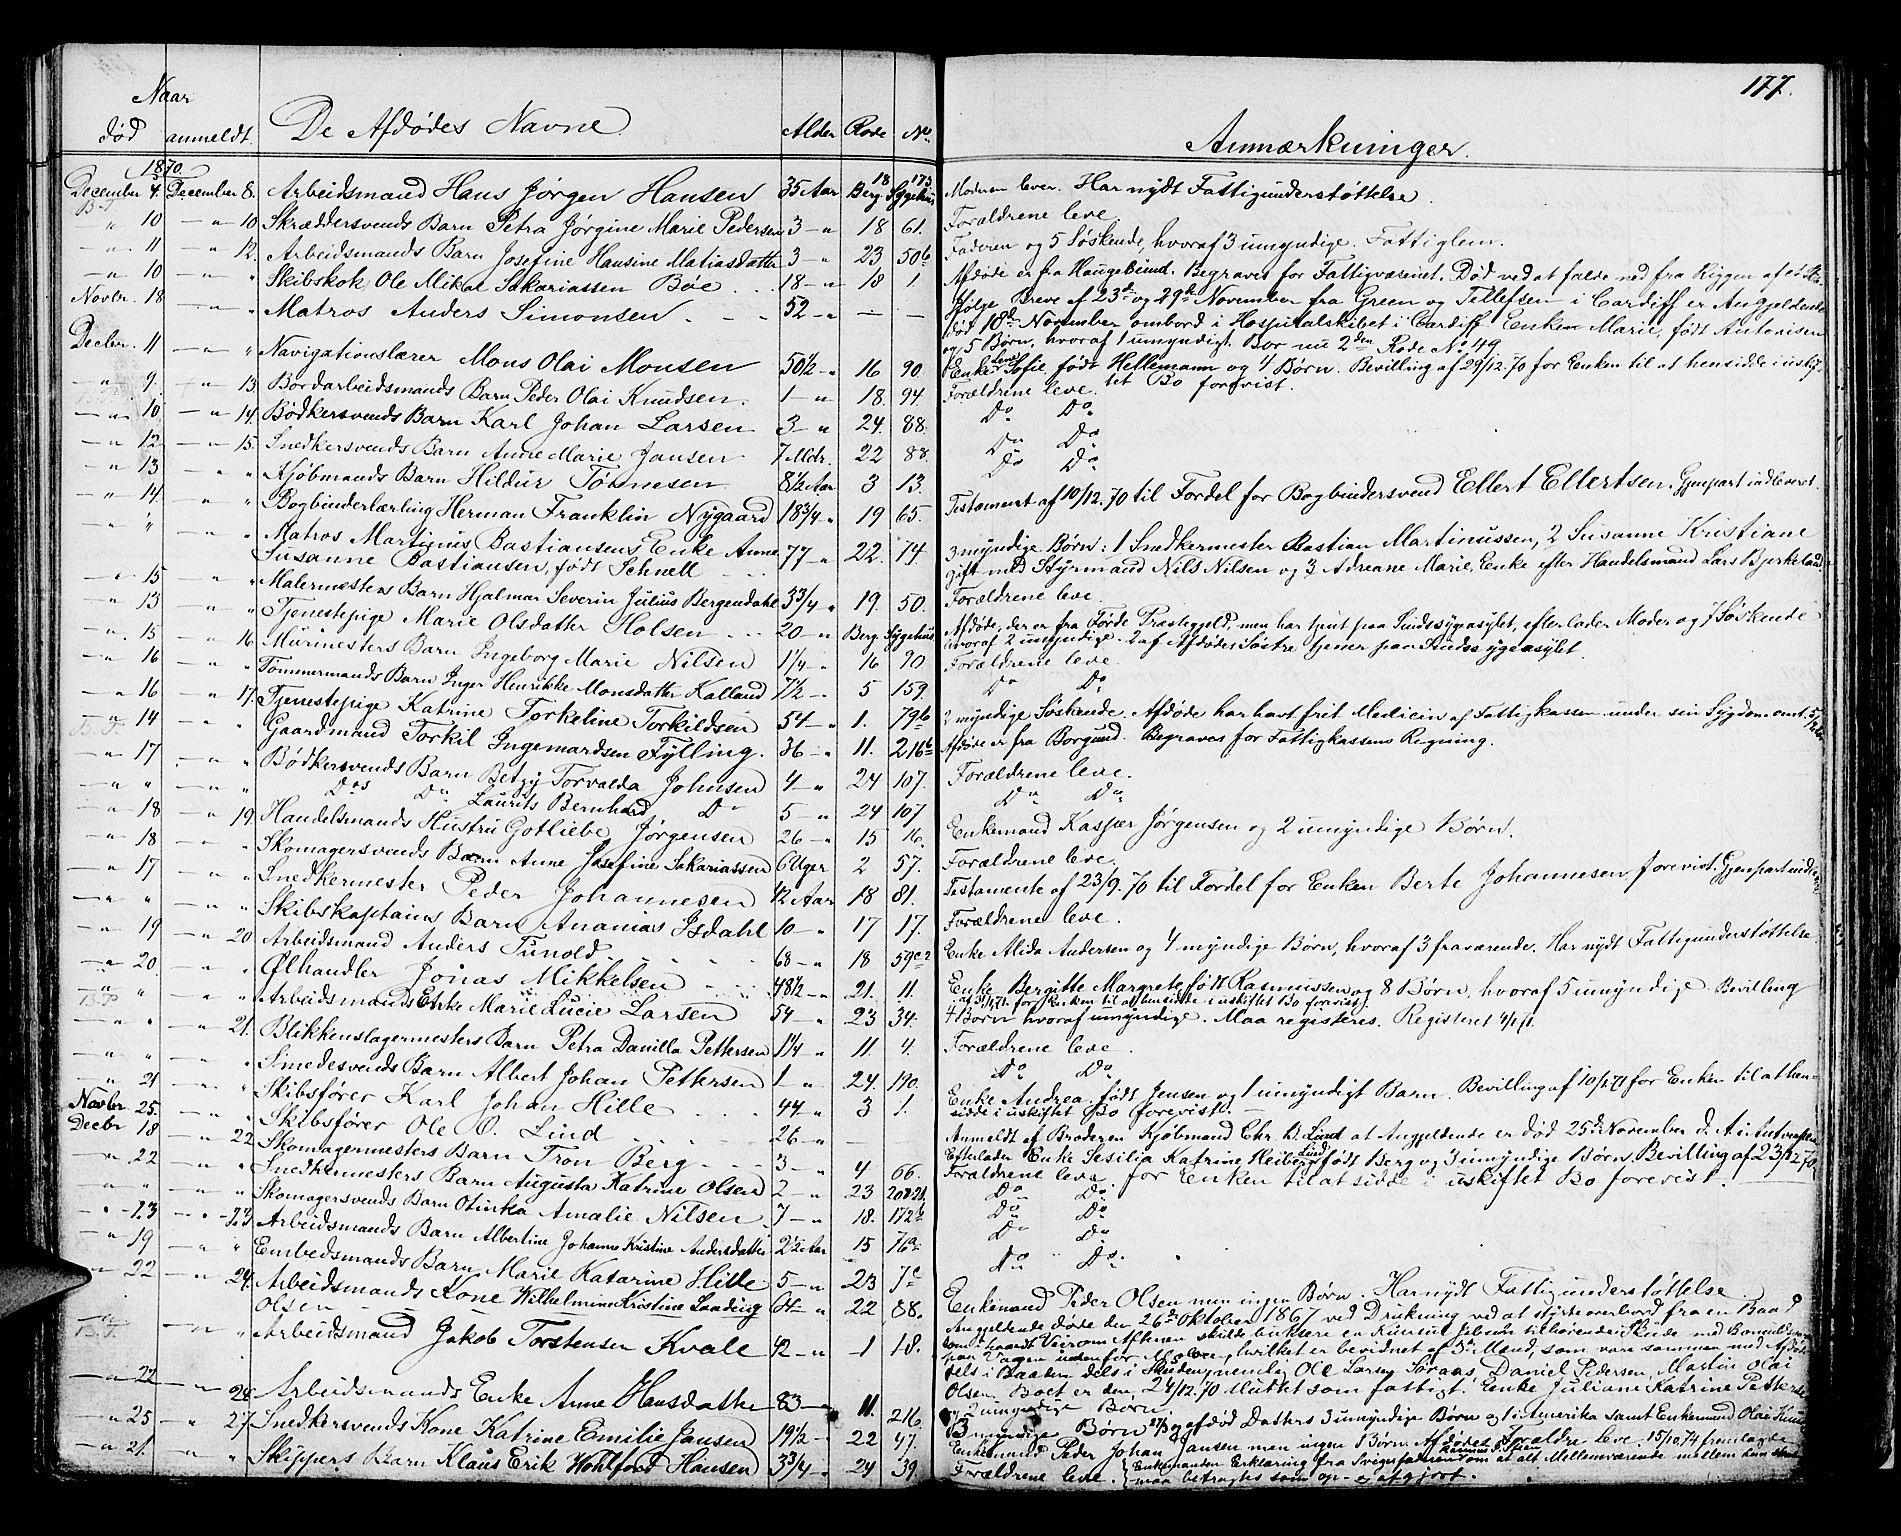 177.
Naar
død anmeldt. De Afdødes Navne. Alder Rode No
Anmærkninger.
1870.
December 4. December 8. Arbeidsmand Hans Jørgen Hansen 35 Aar Berg. Sygehus 18 173 Moderen lever. Har nydt Fattigunderstøttelse.
" 10 — " — 10. Skræddersvends Barn Petra Jørgine Marie Pedersen 3 — " 18 61. Forældrene leve.
— " — 11 — " — 12. Arbeidsmands Barn Josefine Hansine Matiasdatter 3 — " 23 50b Faderen og 5 Søskende, hvoraf 3 umyndige. Fattiglem.
— " — 10 — " — " Skibskok Ole Mikal Sakariassen Bøe 18 — " 18 1. Afdøde er fra Haugesund. Begraves for Fattigvæsenet. Død ved at falde ned fra Riggen af
Novbr. 18 — " — " Matros Anders Simonsen 52 — " — — Ifølge Breve af 23de og 29de November fra Green og Tellefsen i Cardiff er Angjeldende
død 18de November ombord i Hospitalskibet i Cardiff. Enken Marie, født Antonisen
og 5 Børn, hvoraf 1 umyndigt. Bor nu 2den Rode No 49
Decbr. 11 — " — " Navigationslærer Mons Olai Monsen 50 1/2 — " 16 90. Enke Sofie, født Hellemann og 4 Børn. Bevilling af 29/12.70 for Enken til at hensidde i uskif-
tet Bo forevist.
— " — 9. — " — 13. Bordarbeidsmands Barn Peder Olai Knudsen. 1 — " 18. 94. Forældrene leve.
— " — 10 — " — 14. Bødkersvends Barn Karl Johan Larsen 3 — " 24. 88. Do Do
— " — 12 — " — 15. Snedkersvends Barn Anne Marie Jansen 7 Mdr. 22 88. Do Do
— " — 13 — " — " Kjøbmands Barn Hildur Tønnesen 8 1/2 Aar 3 13. Do Do
— " — 14. — " — " Bogbinderlærling Herman Franklin Nygaard 18 3/4 " 19 65. Testament af 10/12.70 til Fordel for Bogbindersvend Ellert Ellertsen. Gjenpart indleveret.
— " — " — " — " Matros Martinus Bastiansens Enke Anne
Susanne Bastiansen, født Schnell 77 — " 22. 14. 3 myndige Børn: 1 Snedkermester Bastian Martinussen, 2 Susanne Kristiane
gift med Styrmand Nils Nilsen og 3 Adreane Marie, Enke efter Handelsmand Lars Bjerkeland
— " — 15 — " — " Malermesters Barn Hjalmar Severin Julius Bergendahl 3 3/4 — " 19. 50. Forældrene leve.
— " — 13 — " — " Tjenestepige Marie Olsdatter Holsen 20 — " Berg. Sygehus Afdøde, der er fra Førde Præstegjeld, men har tjent paa Sindssygeasylet, efterlader Moder og 7 Søskende
hvoraf 2 umyndige. 2 af Afdødes Søstre tjener paa Sindssygeasylet.
— " — 15 — " — 16. Murmesters Barn Ingeborg Marie Nilsen 1 1/4 — " 16 90 Forældrene leve.
— " — 16 — " — " Tømmermands Barn Inger Henrikke Monsdatter Kalland 7 1/2 — " 5 159. Do Do
— " — 16 — " — 17. Tjenestepige Katrine Torkeline Torkildsen 54 — " 1. 79b 2 myndige Søskende. Afdøde har havt frit Medicin af Fattigkassen under sin Sygdom
— " — 14 — " — " Gaardmand Torkil Ingemardsen Fylling. 36 — " 11. 216b Afdøde er fra Borgund. Begraves for Fattigkassens Regning.
— " — 17 — " — " Bødkersvends Barn Betzy Torvalda Johnsen 4 — " 24 107. Forældrene leve.
— " — " — " — " Dos Do Laurits Bernhard Do 5 — " 24 107 Do Do
— " — 18 — " — 19. Handelsmands Hustru Gotliebe Jørgensen 26 — " 15 16. Enkemand Kasper Jørgensen og 2 umyndige Børn.
— " — 18 — " — " Skomagersvends Barn Anne Josefine Sakariassen 6 Uger 2 57. Forældrene leve.
— " — 17 — " — " Snedkermester Peder Johannesen 42 Aar 18 81. Testamente af 23/9.70 til Fordel for Enken Berte Johannesen forevist. Gjenpart
— " — " — " — " Skibskaptains Barn Ananias Isdahl 10 — " 17 17. Forældrene leve.
— " — 19 — " — 20. Arbeidsmand Anders Tunold. 68 — " 18 59c2 Enke Alida Andersen og 4 myndige Børn, hvoraf 3 fraværende. Har nydt Fattigunderstøttelse
— " — 20. — " — " Ølhandler Jonas Mikkelsen 48 1/2 — " 21. 11. Enke Bergitte Margrete, født Rasmussen og 8 Børn, hvoraf 5 umyndige. Bevilling
for Enken til at hensidde i uskiftet Bo forevist.
— " — " — " — " Arbeidsmands Enke Marie Lucie Larsen 54 — " 23 34. 4 Børn hvoraf umyndige. Maa registeres. Registeret
— " — " — " — 21. Blikkenslagermesters Barn Petra Danilla Pettersen 1 1/4 — " 11. 4. Forældrene leve.
— " — " — " — " Smedesvends Barn Albert Johan Pettersen 1 — " 24. 190. Do Do
— " — 21 — " — " Skibsfører Karl Johan Hille 44 — " 3 1. Enke Andrea, født Jensen og 1 umyndigt Barn. Bevilling af 10/1.71 for Enken til at hen-
sidde i uskiftet Bo forevist. —
Novbr 25. — " — " Skibsfører Ole O. Lind 26 — " — — Anmeldt af Broderen Kjøbmand Chr. B. Lind at Angjeldende er død 25de November d. A. i Antwerpen
Efterlader Enke Sesilia Katrine Heiberg Lind født Berg og 3 umyndige Børn. Bevilling af 23/12 70
for Enken til at sidde i uskiftet Bo forevist.
Decbr 18 — " — 22 Skomagermesters Barn Tron Berg 3 — " 4 66. Forældrene leve.
— " — 22 — " — " Snedkermesters Barn Augusta Katrine Olsen 2 — " 23 Do Do
— " — " — " — " Skomagersvends Barn Otinka Amalie Nilsen 7 — " 18. 172b Do Do
— " — 23 — " — 23. Arbeidsmands Barn Albertine Johanne Kristine Andersdatter 2 1/2 Aar 15 76a Do Do
— " — 19 — " — " Embedsmands Barn Marie Katarine Hille 5 — " 23 7c Do Do
— " — 22 — " — 24. Arbeidsmands Kone Wilhelmine Kristine Landing
Olsen 64 — " 22 88. Enkemand Peder Olsen men ingen Børn. Har nydt Fattigunderstøttelse.
— " — " Arbeidsmand Jakob Torstensen Kvale 42 — " 1 18. Angjeldende døde den 26de Oktober 1867 ved Drukning ved at styrte overbord fra en Baad
som i haardt Veir om Aftenen skulde buksere en tilhørende Skude med
paa Vaagen udenfor, hvilket er bevidnet af 3de Mænd, som vare sammen med Afdøde
dels i Baaden dels i Skuden, nemlig Ole Larsen, Daniel Pedersen, Martin Olai
Olsen. Boet er den 24/12.70 sluttet som fattigt. Enke Juliane Katrine
og 2 umyndige Børn.
— " — 22 — " — 24 Arbeidsmands Enke Anne Hansdatter 83 — " 11. 216. 3 myndige Børn og afdød Datters 3 umyndige Børn
— " — 25 — " — 27. Snedkersvends Kone Katrine Emilie Jansen 19 1/2 — " 22 47. Enkemand Peder Johan Jansen men ingen Børn. Afdødes Forældre leve. 15/10.74 fremlagde
Enkemanden Erklæring fra Svigerfaderen om at alt Mellemværende mellem dem
maa betragtes som op- og afgjort.
— " — 21. — " — " Skippers Barn Klaus Erik Wohlford Hansen 3 3/4 — " 24 39. Forældrene leve.